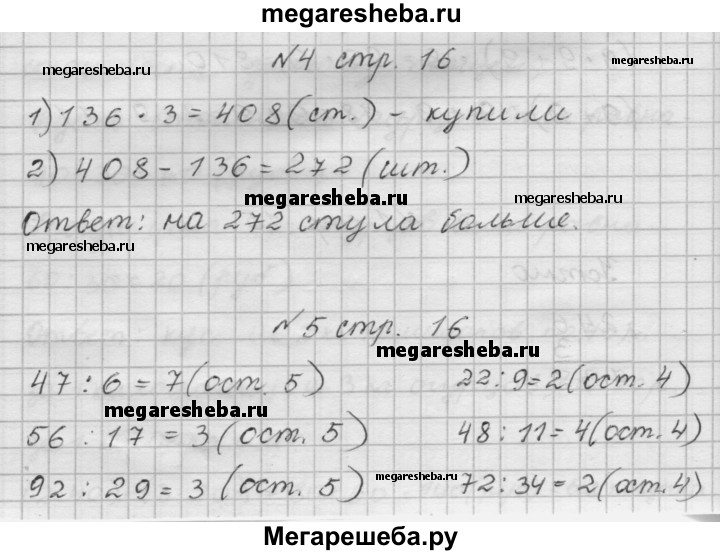 megaresheba.ru
№4 стр. 16
megaresheba.ru
megaresheba.ru
1) 136 · 3 = 408 (ст.) - купили
2) 408 - 136 = 272 (шт.)
megaresheba.ru
megaresheba.ru
Ответ: на 272 стула больше.
megaresheba.ru
№5 стр. 16
megaresheba.ru
47 : 6 = 7 (ост. 5) 22 : 9 = 2 (ост. 4)
megaresheba.ru
56 : 17 = 3 (ост. 5) 48 : 11 = 4 (ост. 4)
megaresheba.ru
92 : 29 = 3 (ост. 5) 72 : 34 = 2 (ост. 4)
Мегарешеба.ру